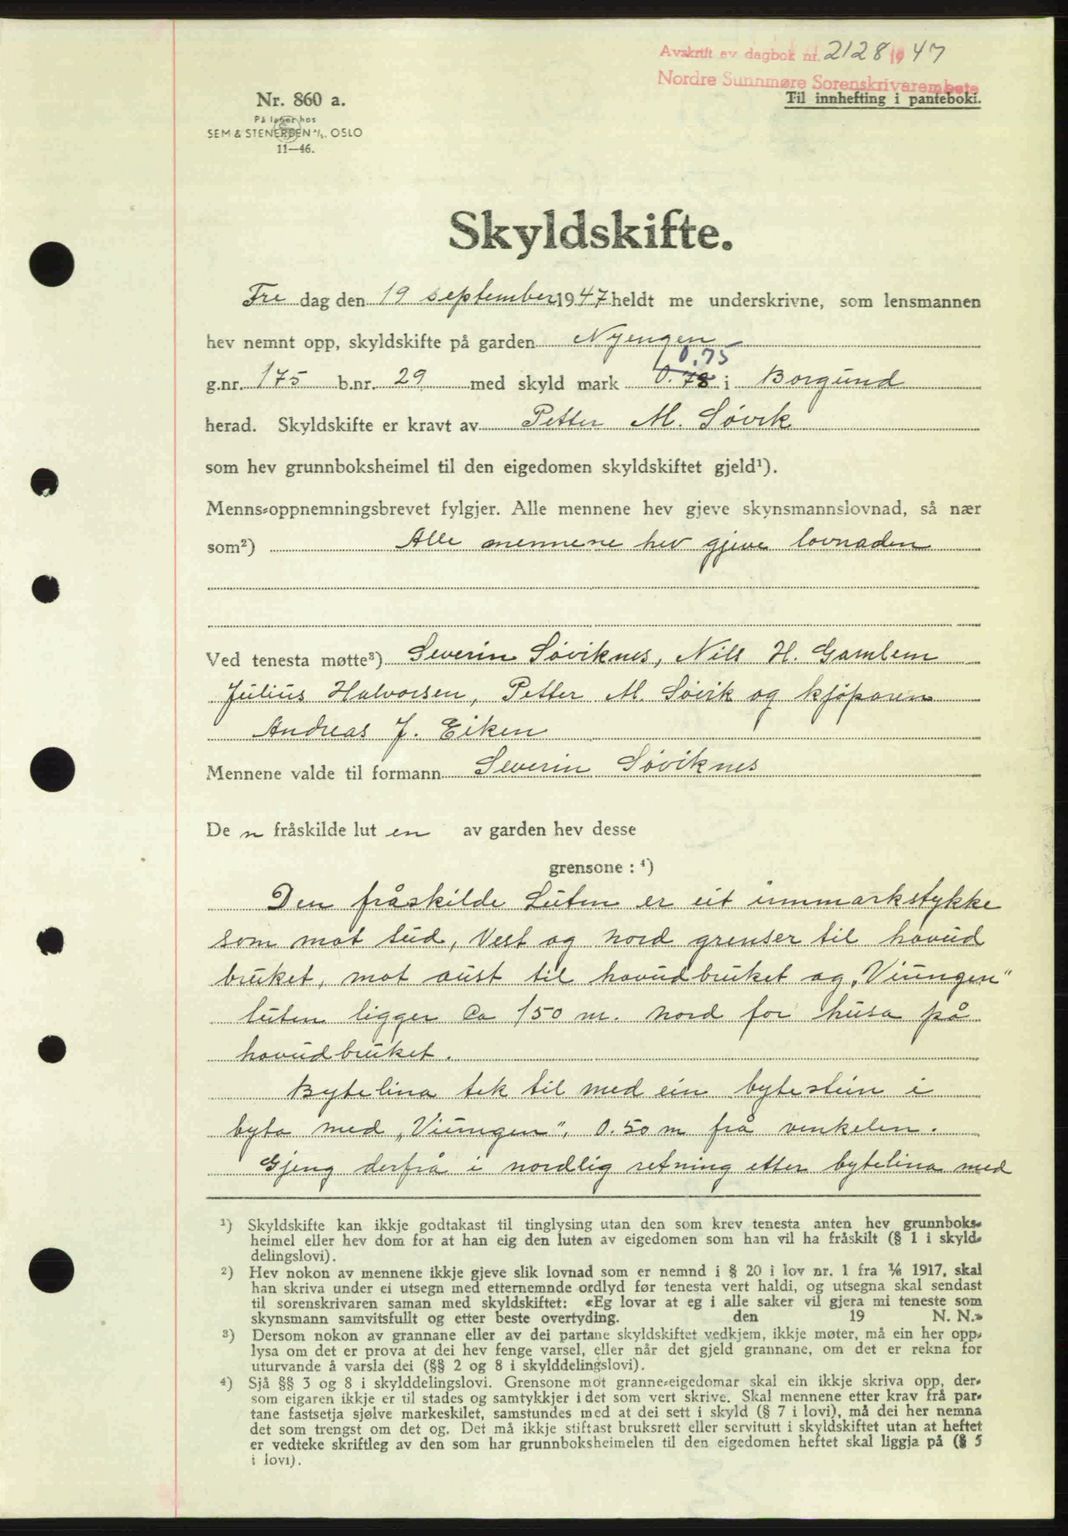 Avskrift av dagbok nr. 2128 1947
Nordre Sunnmøre Sorenskrivarembete
Til innhefting i panteboki.
Nr. 860 a.
På lager hos
SEM & STENERSEN A/S. OSLO
11—46.
Skyldskifte.
Fre dag den 19 september 1947 heldt me underskrivne, som lensmannen
hev nemnt opp, skyldskifte på garden Nyengen
0.75
g.nr. 175 b.nr. 29 med skyld mark 0.78 i Borgund
herad. Skyldskifte er kravt av Petter M. Søvik
som hev grunnboksheimel til den eigedomen skyldskiftet gjeld¹).
Menns-oppnemningsbrevet fylgjer. Alle mennene hev gjeve skynsmannslovnad, så nær
som²) Alle mennene hev gjeve lovnaden
Ved tenesta møtte³) Severin Søviknes, Nils H. Gamlem
Julius Halvorsen, Petter M. Søvik og kjøparen
Andreas J. Eiken
Mennene valde til formann Severin Søviknes
De n fråskilde lut en av garden hev desse
grensone : ⁴)
Den fråskilde Luten er eit innmarkstykke
som mot sud, Vest og nord grenser til hovud
bruket, mot aust til hovudbruket og „Viungen"
luten ligger ca 150 m. nord for husa på
hovudbruket.
Bytelina tek til med ein bytestein i
byta med „Viungen", 0.50 m frå vinkelen.
Gjeng derfrå i nordlig retning etter bytelina med
¹) Skyldskifte kan ikkje godtakast til tinglysing utan den som krev tenesta anten hev grunnboks-
heimel eller hev dom for at han eig den luten av eigedomen som han vil ha fråskilt (§ 1 i skyld-
delingslovi).
²) Hev nokon av mennene ikkje gjeve slik lovnad som er nemnd i § 20 i lov nr. 1 fra ⅙ 1917, skal
han skriva under ei utsegn med etternemnde ordlyd før tenesta vert haldi, og utsegna skal sendast
til sorenskrivaren saman med skyldskiftet: «Eg lovar at eg i alle saker vil gjera mi teneste som
skynsmann samvitsfullt og etter beste overtyding. den 19 N. N.»
³) Dersom nokon av grannane eller av dei partane skyldskiftet vedkjem, ikkje møter, må ein her opp-
lysa om det er prova at dei hev fenge varsel, eller når det gjeld grannane, om det er rekna for
uturvande å varsla dei (§§ 2 og 8 i skylddelingslovi).
⁴) Sjå §§ 3 og 8 i skylddelingslovi. Grensone mot granne-eigedomar skal ein ikkje skriva opp, der-
som eigaren ikkje er til stades og samtykkjer i det som vert skrive. Skal mennene etter krav frå par-
tane fastsetja sjølve markeskilet, samstundes med at dei sett i skyld (§ 7 i lovi), må dei her nemna
det som trengst om det og. Det må ikkje stiftast bruksrett eller servitutt i skyldskiftet utan at heftet
er vedteke skriftleg av den som har grunnboksheimelen til den eigedomen heftet skal liggja på (§ 5
i lovi).